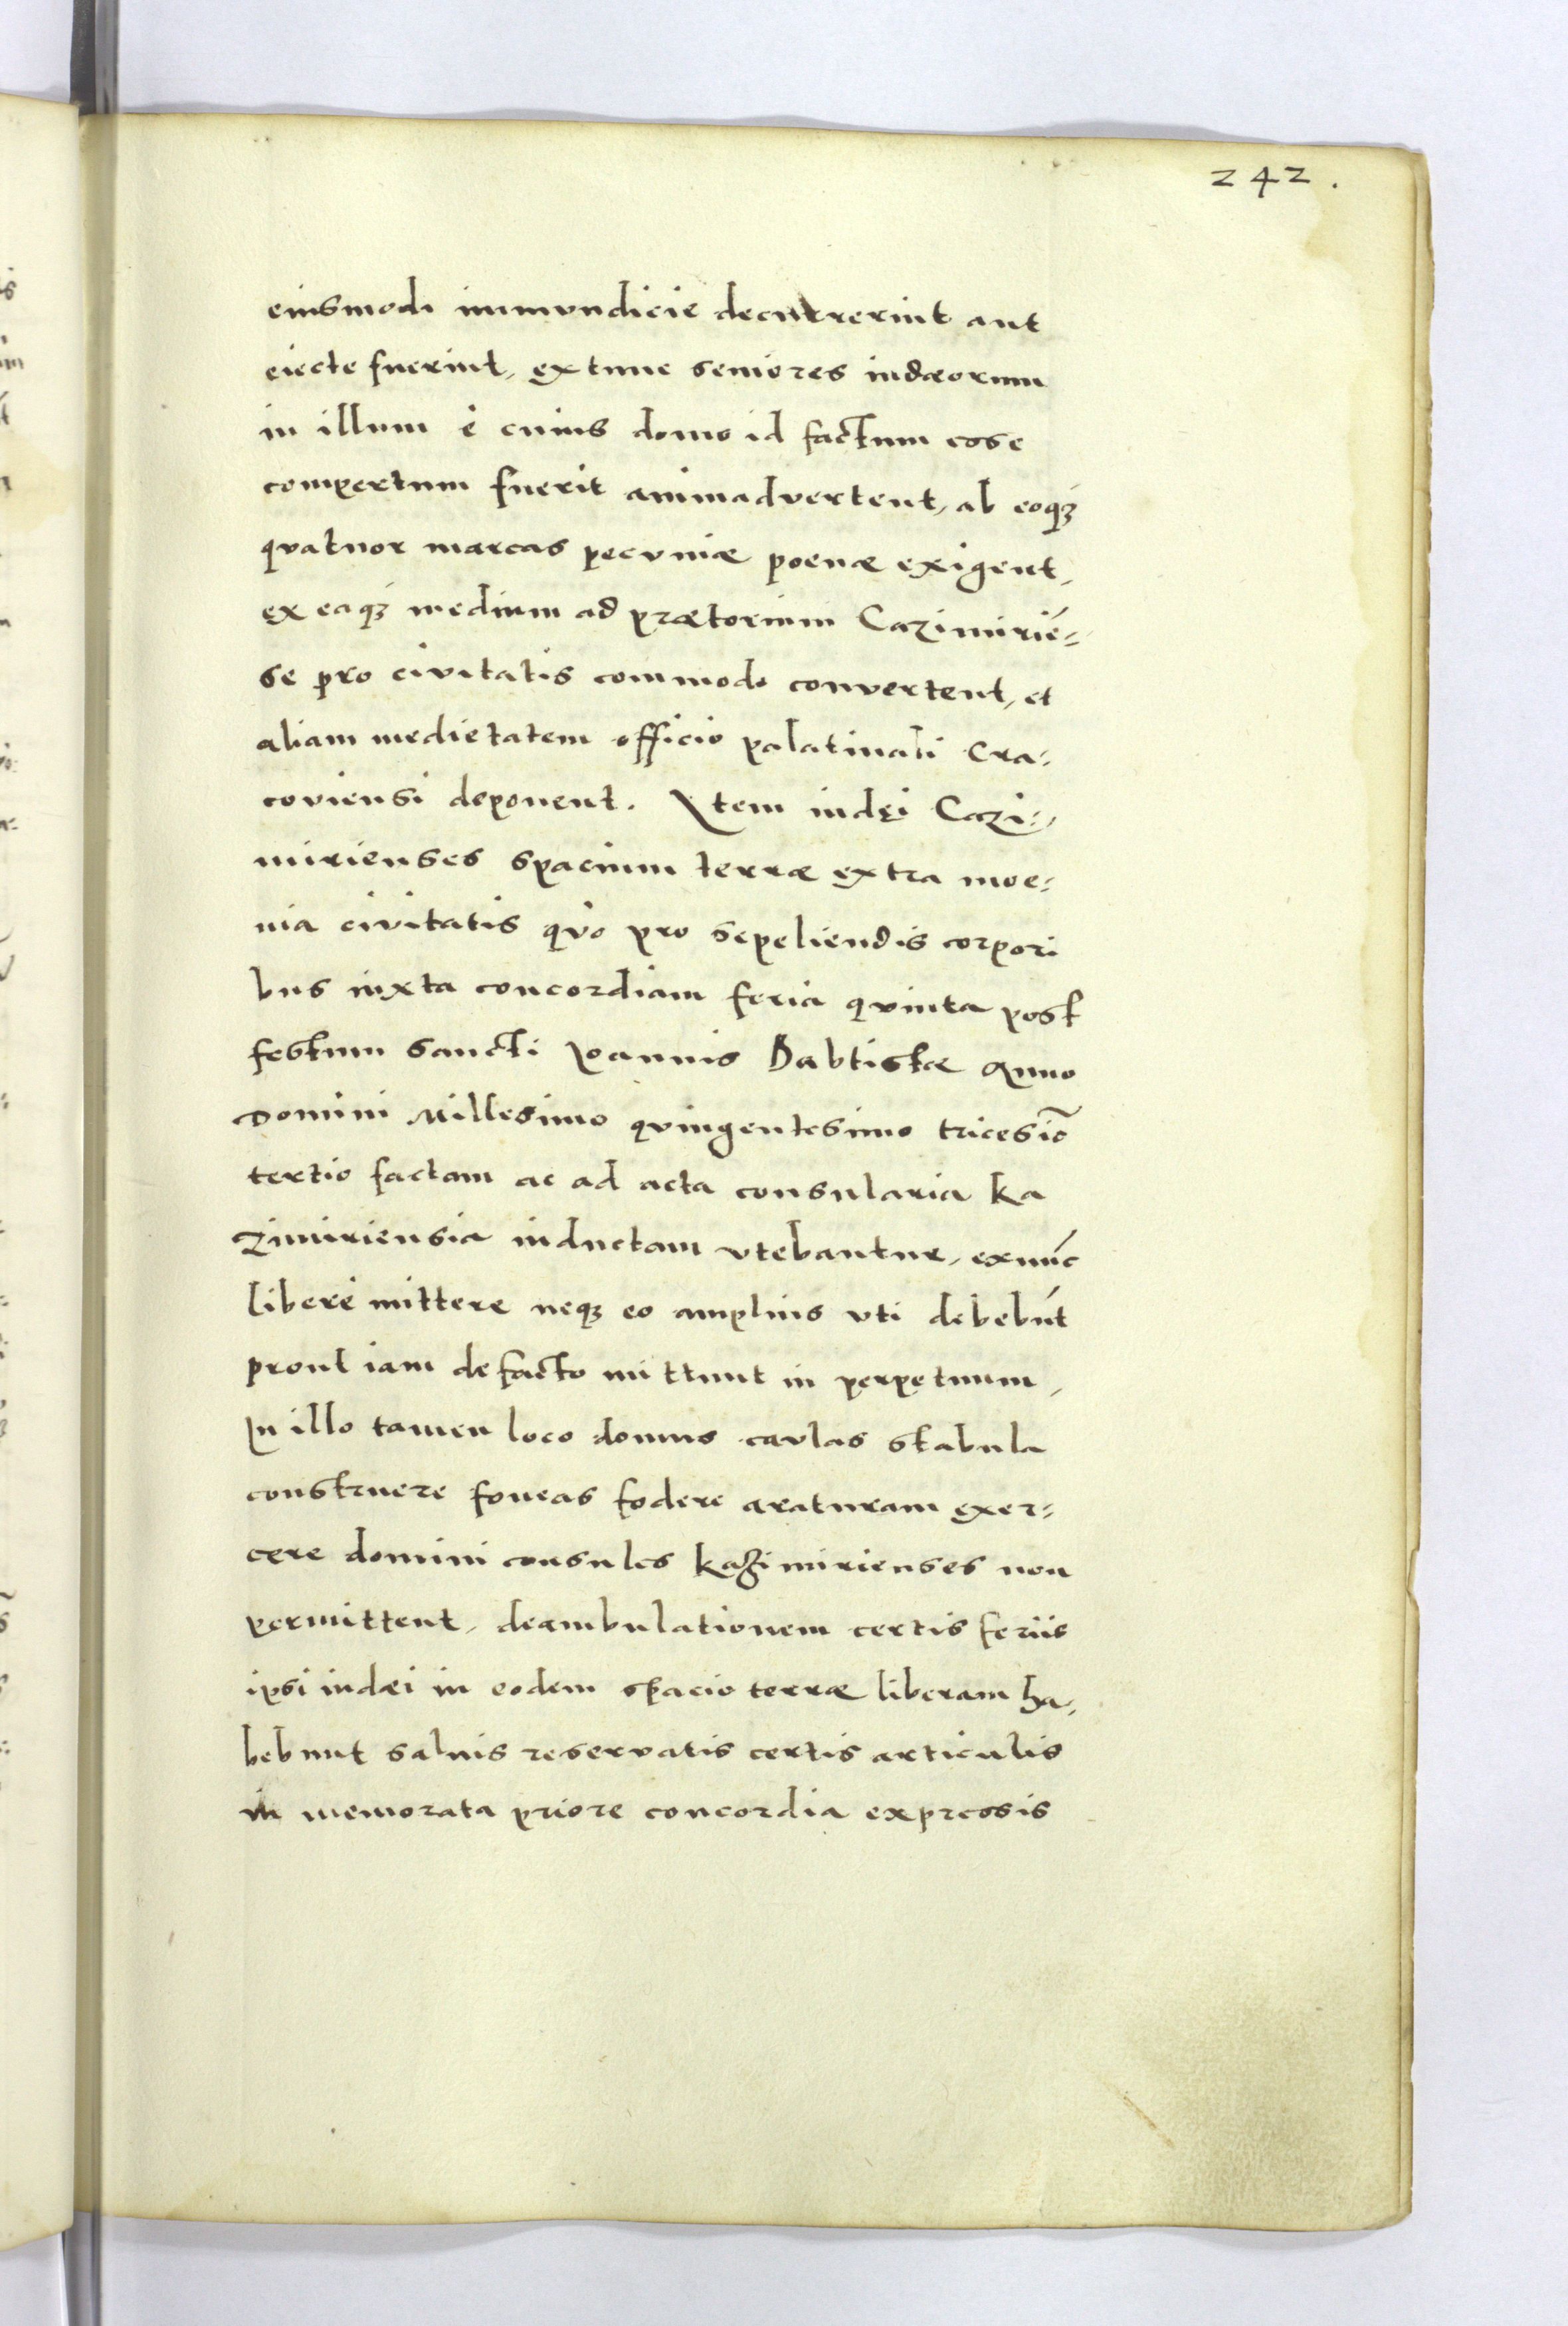 242.
eiusmodi immundicie decurrerint aut
eiecte fuerint, extunc seniores iudæorum
in illum è cuius domo id factum esse
compertum fuerit animadvertent, ab eoqꝫ
qvatuor marcas pecuniæ poenæ exigent,
ex eaqꝫ medium ad prætorium Cazimirié=
se pro civitatis commodo convertent, et
aliam medietatem officio palatinali Cra=
coviensi deponent. Item iudęi Cazi=
mirienses spacium terræ extra moe=
nia civitatis qvo pro sepeliendis corpori
bus iuxta concordiam feria qvinta post
festum sancti Ioannis Babtistæ Anno
Domini Millesimo qvingentesimo tricesiō
tertio factam ac ad acta consularia Ka
zimiriensia inductam vtebantur, exnúc
liberè mittere neqꝫ eo amplius vti debebút
prout iam de facto mittunt in perpetuum,
In illo tamen loco domus caulas stabula
construere foueas fodere araturam exer=
cere domini consules Kazimirienses non
permittent, deambulationem certis feriis
ipsi iudæi in eodem spacio terræ liberam ha=
bebunt saluis reservatis certis articulis
in memorata priore concordia expressis